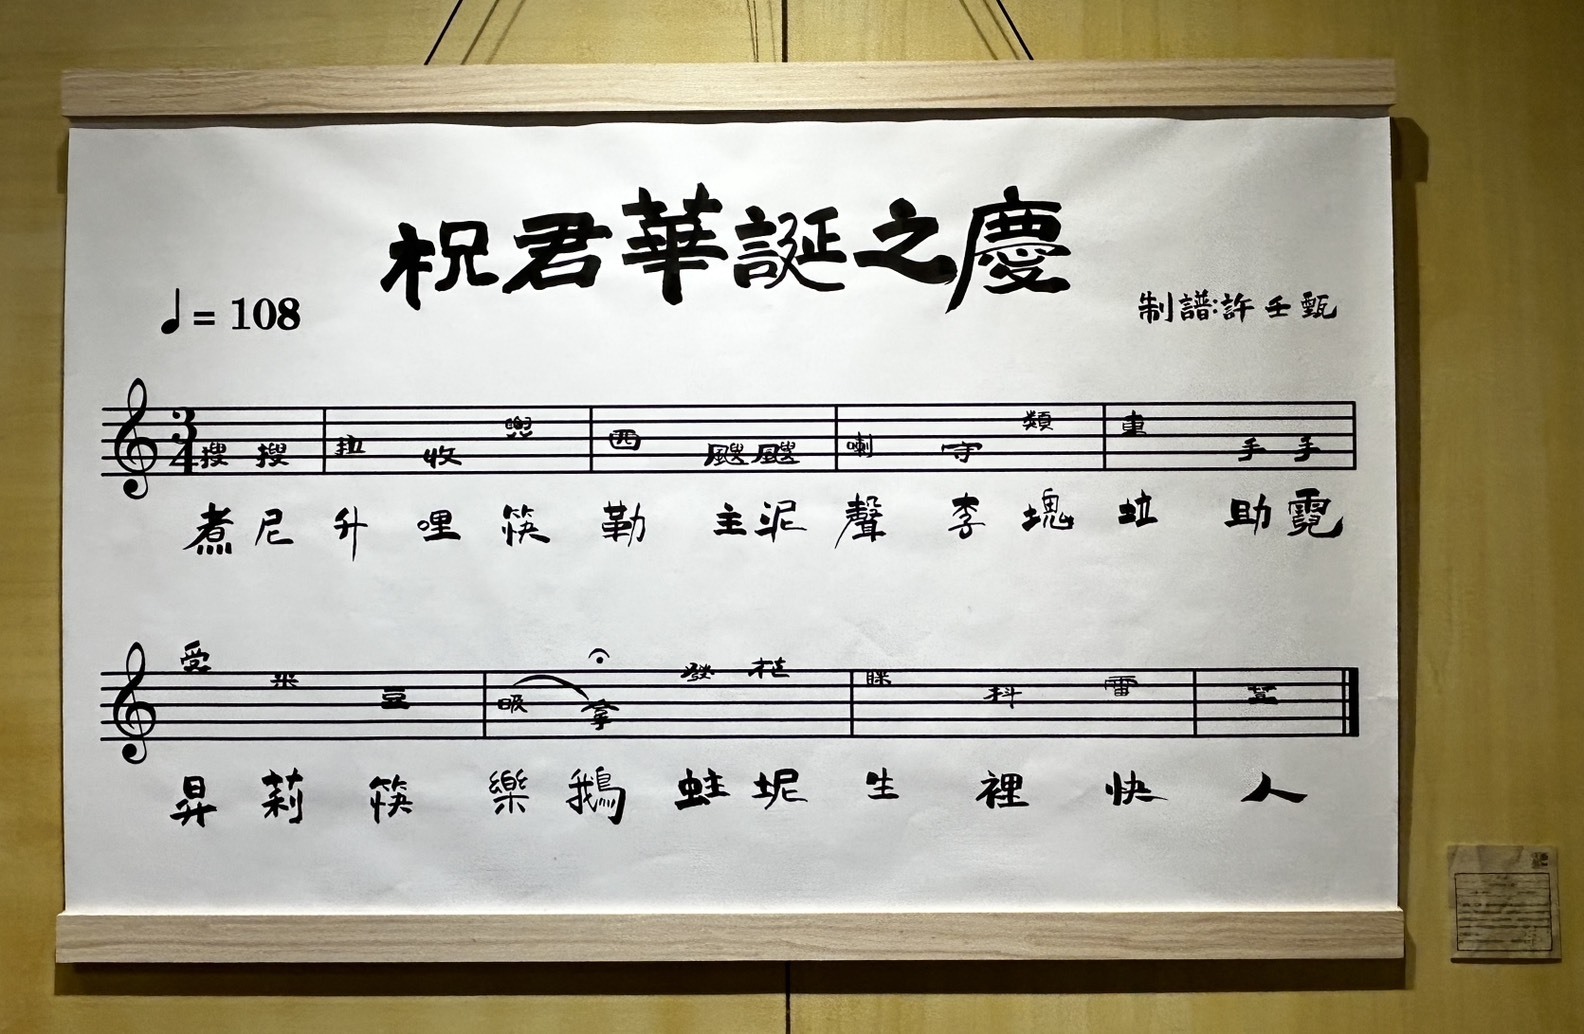 祝君華誕之慶
♩= 108
制譜:許壬甄
3/4
搜 搜 拉 收 兜 西 颼 颼 喇 守 類 東 手 手
煮 尼 升 哩 筷 勒 主 泥 聲 李 塊 垃 助 霓
受 米 豆 吸 拿 發 花 眯 抖 雷 荳
昇 莉 筷 樂 鵝 蛀 坭 生 裡 快 人